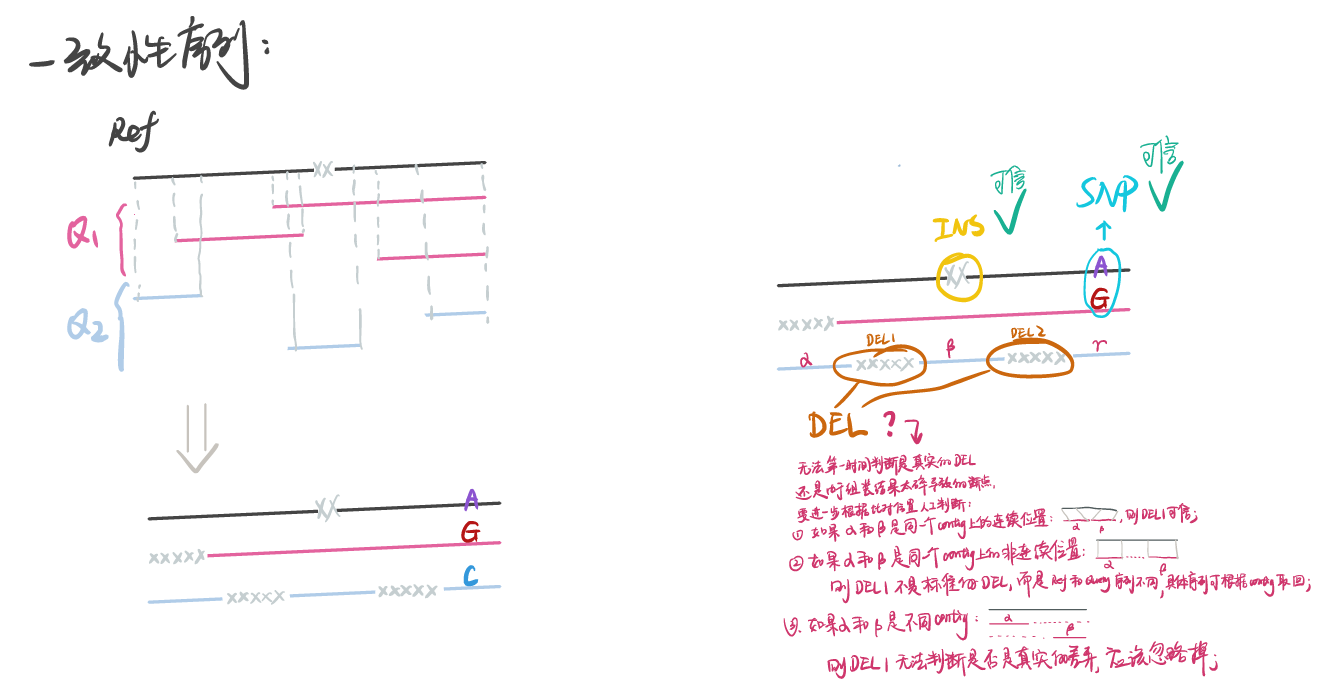 一致性序列：
Ref
XX
Q1
Q2
XX
A
XXXXX
G
XXXXX
XXXXX
C
可信
可信
SNP
INS
XX
A
G
XXXXX
DEL1
β
DEL2
α
XXXXX
XXXXX
r
DEL ?
无法第一时间判断是真实的DEL
还是由于组装结果太碎导致的断点，
要进一步根据比对位置人工判断：
① 如果 α 和 β 是同一个contig上的连续位置： α β ，则DEL1可信；
② 如果 α 和 β 是同一个contig上的非连续位置： α β
则 DEL1 不是标准的DEL，而是 Ref 和 Query 序列不同，具体序列可根据contig取回；
③. 如果 α 和 β 是不同contig： α β
则DEL1 无法判断是否是真实的差异，应该忽略掉；